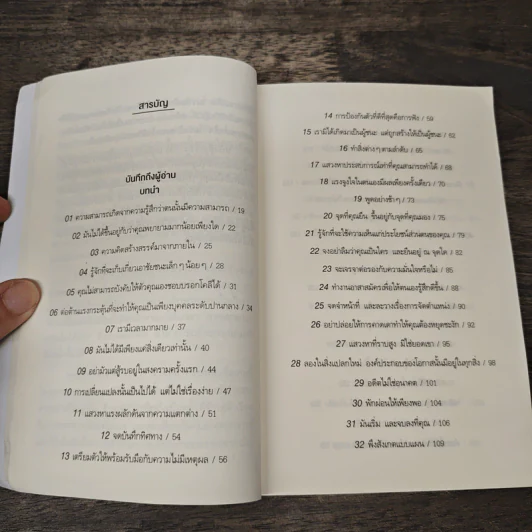 สารบัญ
บันทึกถึงผู้อ่าน
บทนำ
01 ความสามารถเกิดจากความรู้สึกว่าตนนั้นมีความสามารถ / 19
02 มันไม่ได้ขึ้นอยู่กับว่าคุณพยายามมากน้อยเพียงใด / 22
03 ความคิดสร้างสรรค์มาจากภายใน / 25
04 รู้จักที่จะเก็บเกี่ยวเอาชัยชนะเล็กๆ น้อยๆ / 28
05 คุณไม่สามารถบังคับให้ตัวคุณเองชอบบรอกโคลีได้ / 31
06 จงต้านแรงกระตุ้นที่จะทำให้คุณเป็นเพียงบุคคลระดับปานกลาง / 34
07 เรามีเวลามากมาย / 37
08 มันไม่ได้มีเพียงแค่สิ่งเดียวเท่านั้น / 40
09 อย่ามัวแต่สู้รบอยู่ในสงครามครั้งแรก / 44
10 การเปลี่ยนแปลงนั้นเป็นไปได้ แต่ไม่ใช่เรื่องง่าย / 47
11 แสวงหาแรงผลักดันจากความแตกต่าง / 51
12 จดบันทึกทิศทาง / 54
13 เตรียมตัวให้พร้อมรับมือกับความไม่มีเหตุผล / 56
14 การป้องกันตัวที่ดีที่สุดคือการฟัง / 59
15 เรามิได้เกิดมาเป็นผู้ชนะ แต่ถูกสร้างให้เป็นผู้ชนะ / 62
16 ทำสิ่งต่างๆ ตามลำดับ / 65
17 แสวงหาประสบการณ์เท่าที่คุณสามารถทำได้ / 68
18 แรงจูงใจในตนเองมีผลเพียงครั้งเดียว / 71
19 พูดอย่างช้าๆ / 73
20 จุดที่คุณยืน ขึ้นอยู่กับจุดที่คุณมอง / 75
21 รู้จักที่จะใช้ความเห็นแก่ประโยชน์ส่วนตนของคุณ / 79
22 จงอย่าลืมว่าคุณเป็นใคร และยืนอยู่ ณ จุดใด / 82
23 จะเจรจาต่อรองกับความมั่นใจหรือไม่ / 85
24 ทำงานอาสาสมัครเพื่อให้ตนเองรู้สึกดีขึ้น / 88
25 จดจำหน้าที่ และละวางเรื่องการจัดตำแหน่ง / 90
26 อย่าปล่อยให้การคาดเดาทำให้คุณต้องหยุดชะงัก / 92
27 แสวงหาที่ราบสูง มิใช่ยอดเขา / 95
28 ลองในสิ่งแปลกใหม่ องค์ประกอบของโอกาสนั้นมีอยู่ในทุกสิ่ง / 98
29 อดีตไม่ใช่อนาคต / 101
30 พักผ่อนให้เพียงพอ / 104
31 มันเริ่ม และจบลงที่คุณ / 106
32 พึงสังเกตแบบแผน / 109